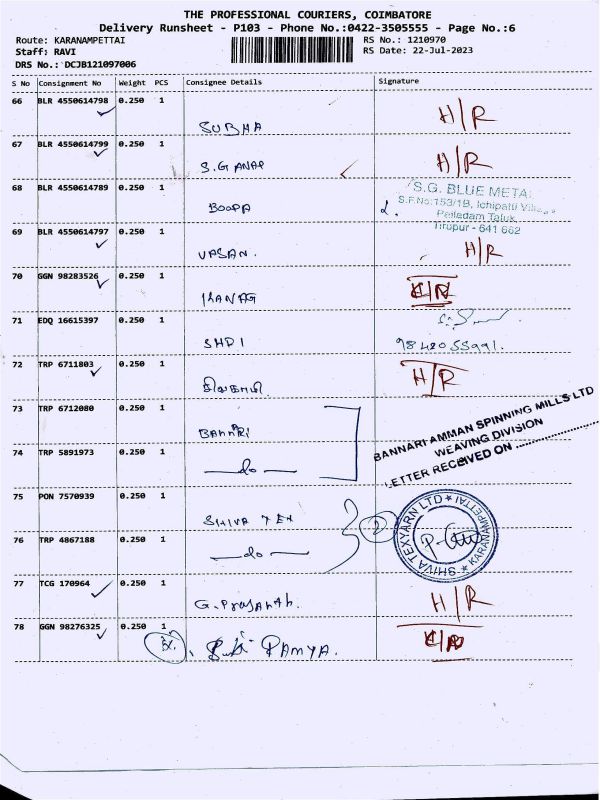 THE PROFESSIONAL COURIERS, COIMBATORE
Delivery Runsheet - P103 - Phone No.:0422-3505555 - Page No.:6
Route: KARANAMPETTAI RS No.: 1210970
Staff: RAVI RS Date: 22-Jul-2023
DRS No.: DCJB121097006
S No Consignment No Weight PCS Consignee Details Signature
66 BLR 4550614798 0.250 1 H/R
SUBHA
67 BLR 4550614799 0.250 1 H/R
S.GANAP
68 BLR 4550614789 0.250 1
BOOPA
S.G. BLUE META
S.F.No:153/1B, Ichipatti
Palladam Taluk,
Tirupur - 641 662
69 BLR 4550614797 0.250 1 H/R
VASAN.
70 GGN 98283526 0.250 1
KANAG
71 EDQ 16615397 0.250 1
SHRI 9842055991.
72 TRP 6711803 0.250 1 H/R
சிவகாமி.
73 TRP 6712080 0.250 1
BANARI
BANNARI AMMAN SPINNING MILLS LTD
WEAVING DIVISION
LETTER RECEIVED ON
74 TRP 5891973 0.250 1
do
75 PON 7570939 0.250 1
SHIVA TEX 2
SHIVA TEXYARN LTD * KARANAMPETTAI *
76 TRP 4867188 0.250 1
do
77 TCG 170964 0.250 1 H/R
G.Prasanth.
78 GGN 98276325 0.250 1
RAMYA.